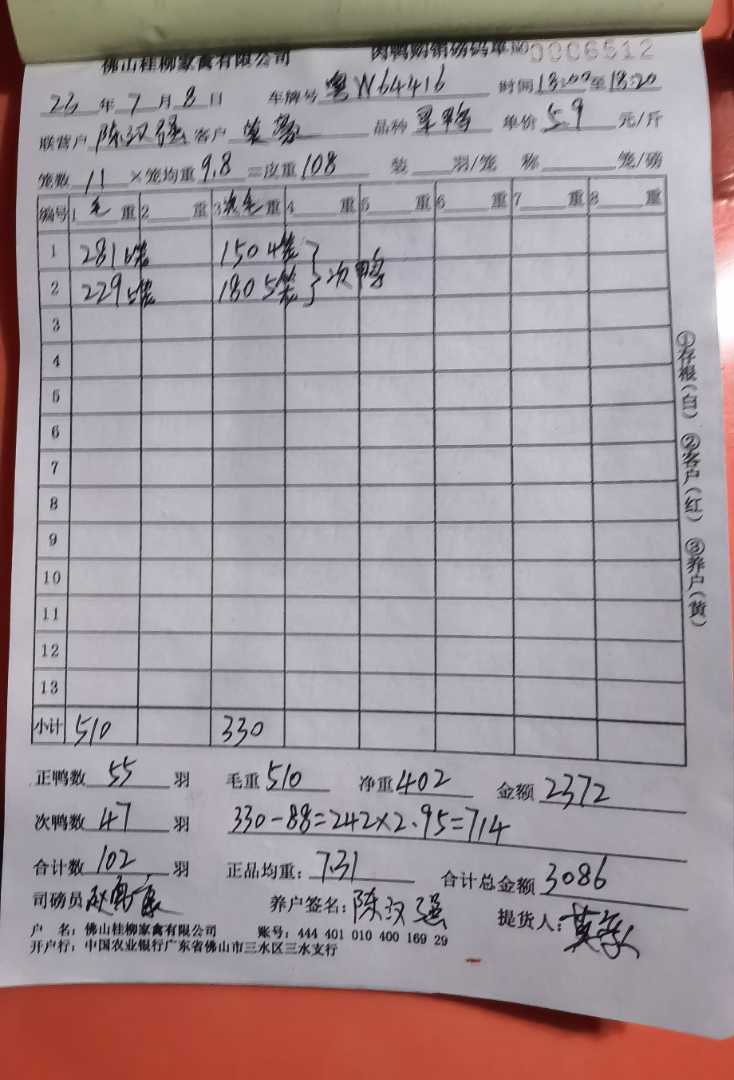 佛山桂柳家禽有限公司 肉鸭购销磅码单 № 0006512
23 年 7 月 8 日 车牌号 粤W64416 时间 18:00 至 18:20
联营户 陈汉强 客户 品种 单价 5.9 元/斤
笼数 11 ×笼均重 9.8 =皮重 108 装 羽/笼 称 笼/磅
编号 1 毛 重 2 重 3 次毛 重 4 重 5 重 6 重 7 重 8 重
1 281 150 4笼
2 229 180 5笼 次鸭
3
4
5
6
7
8
9
10
11
12
13
小计 510 330
正鸭数 55 羽 毛重 510 净重 402 金额 2372
次鸭数 47 羽 330-88=242×2.95=714
合计数 102 羽 正品均重: 7.31 合计总金额 3086
司磅员 养户签名: 陈汉强 提货人:
户 名: 佛山桂柳家禽有限公司 账号: 444 401 010 400 169 29
开户行: 中国农业银行广东省佛山市三水区三水支行
①存根(白) ②客户(红) ③养户(黄)